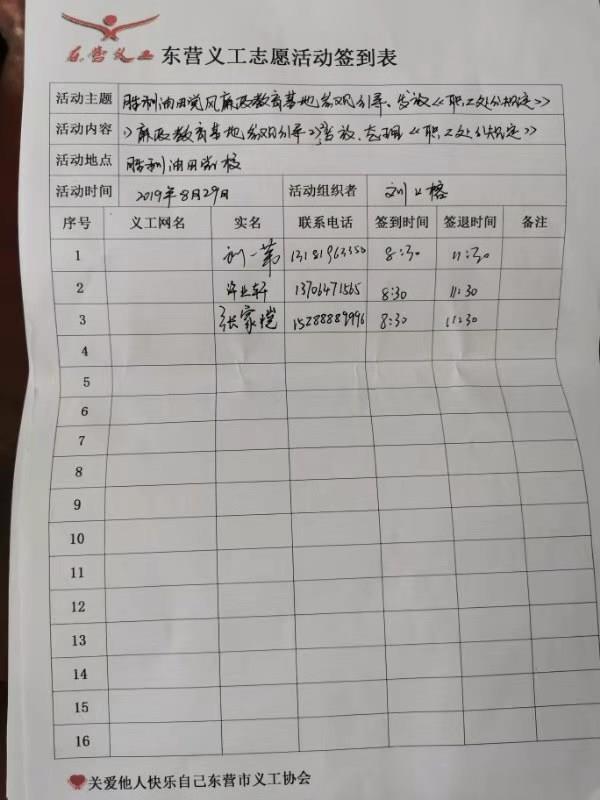 东营义工 东营义工志愿活动签到表
活动主题 胜利油田党风廉政教育基地参观引导、发放《职工处分规定》
活动内容 1)廉政教育基地参观引导 2)发放、整理《职工处分规定》
活动地点 胜利油田党校
活动时间 2019年8月29日 活动组织者 刘
序号 义工网名 实名 联系电话 签到时间 签退时间 备注
1 刘一苇 13181963350 8:30 11:30
2 轩 13706471565 8:30 11:30
3 张家 15288889996 8:30 11:30
4
5
6
7
8
9
10
11
12
13
14
15
16
关爱他人快乐自己东营市义工协会